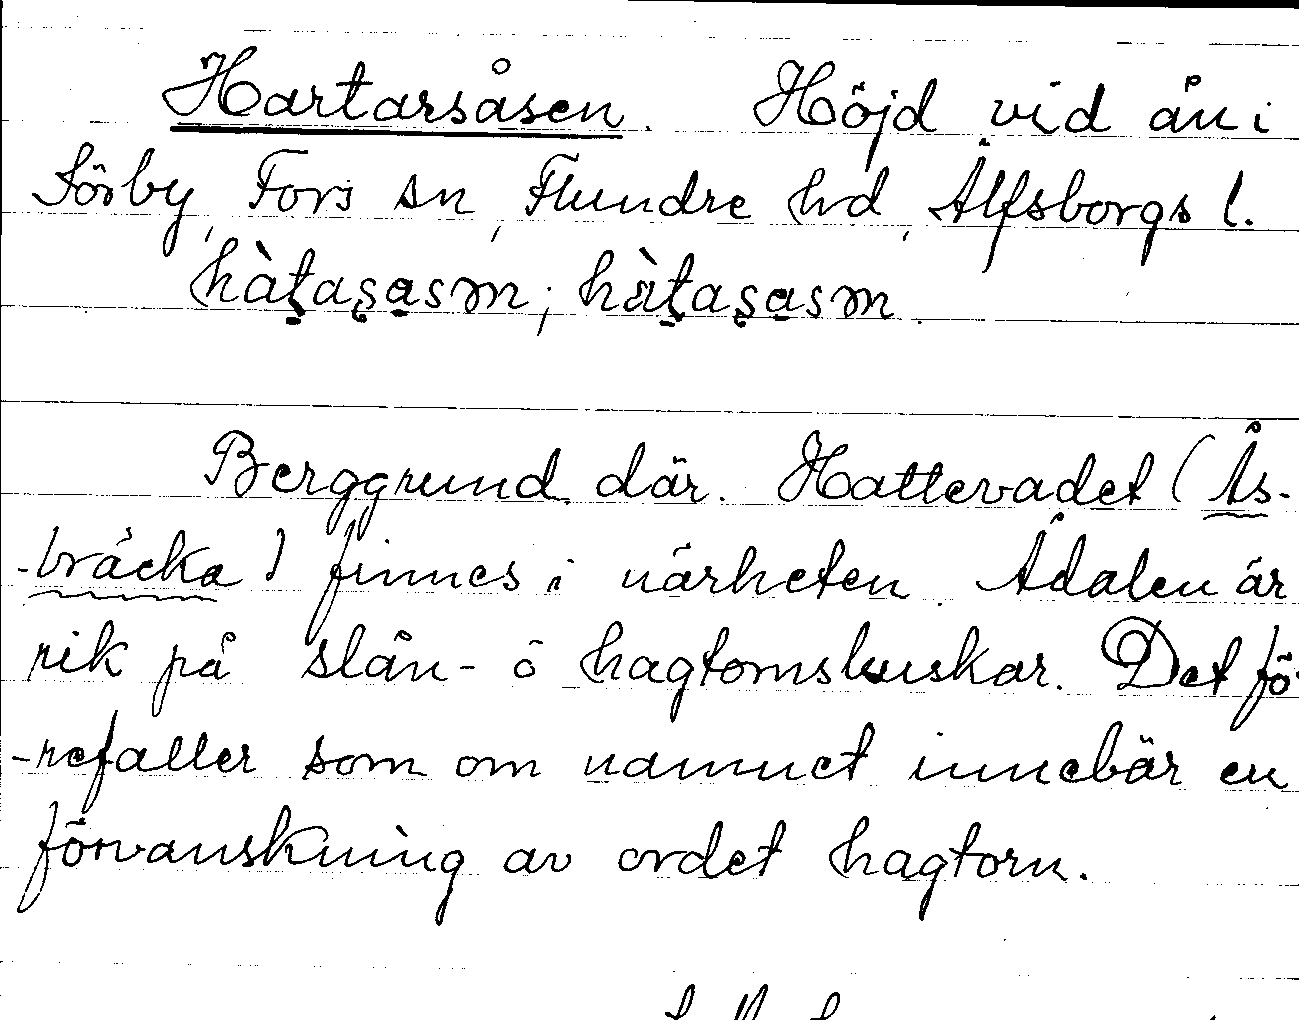 Hartarsåsen. Höjd vid ån i
Sörby, Fors sn, Flundre hrd, Älfsborgs l.
hàt̰as̰a̰sm; hàt̰as̰a̰sm.
Berggrund där. Hattevadet (Ås-
-bräcka) finnes i närheten. Ådalen är
rik på slån- o hagtornsbuskar. Det fö-
-refaller som om namnet innebär en
förvanskning av ordet hagtorn.